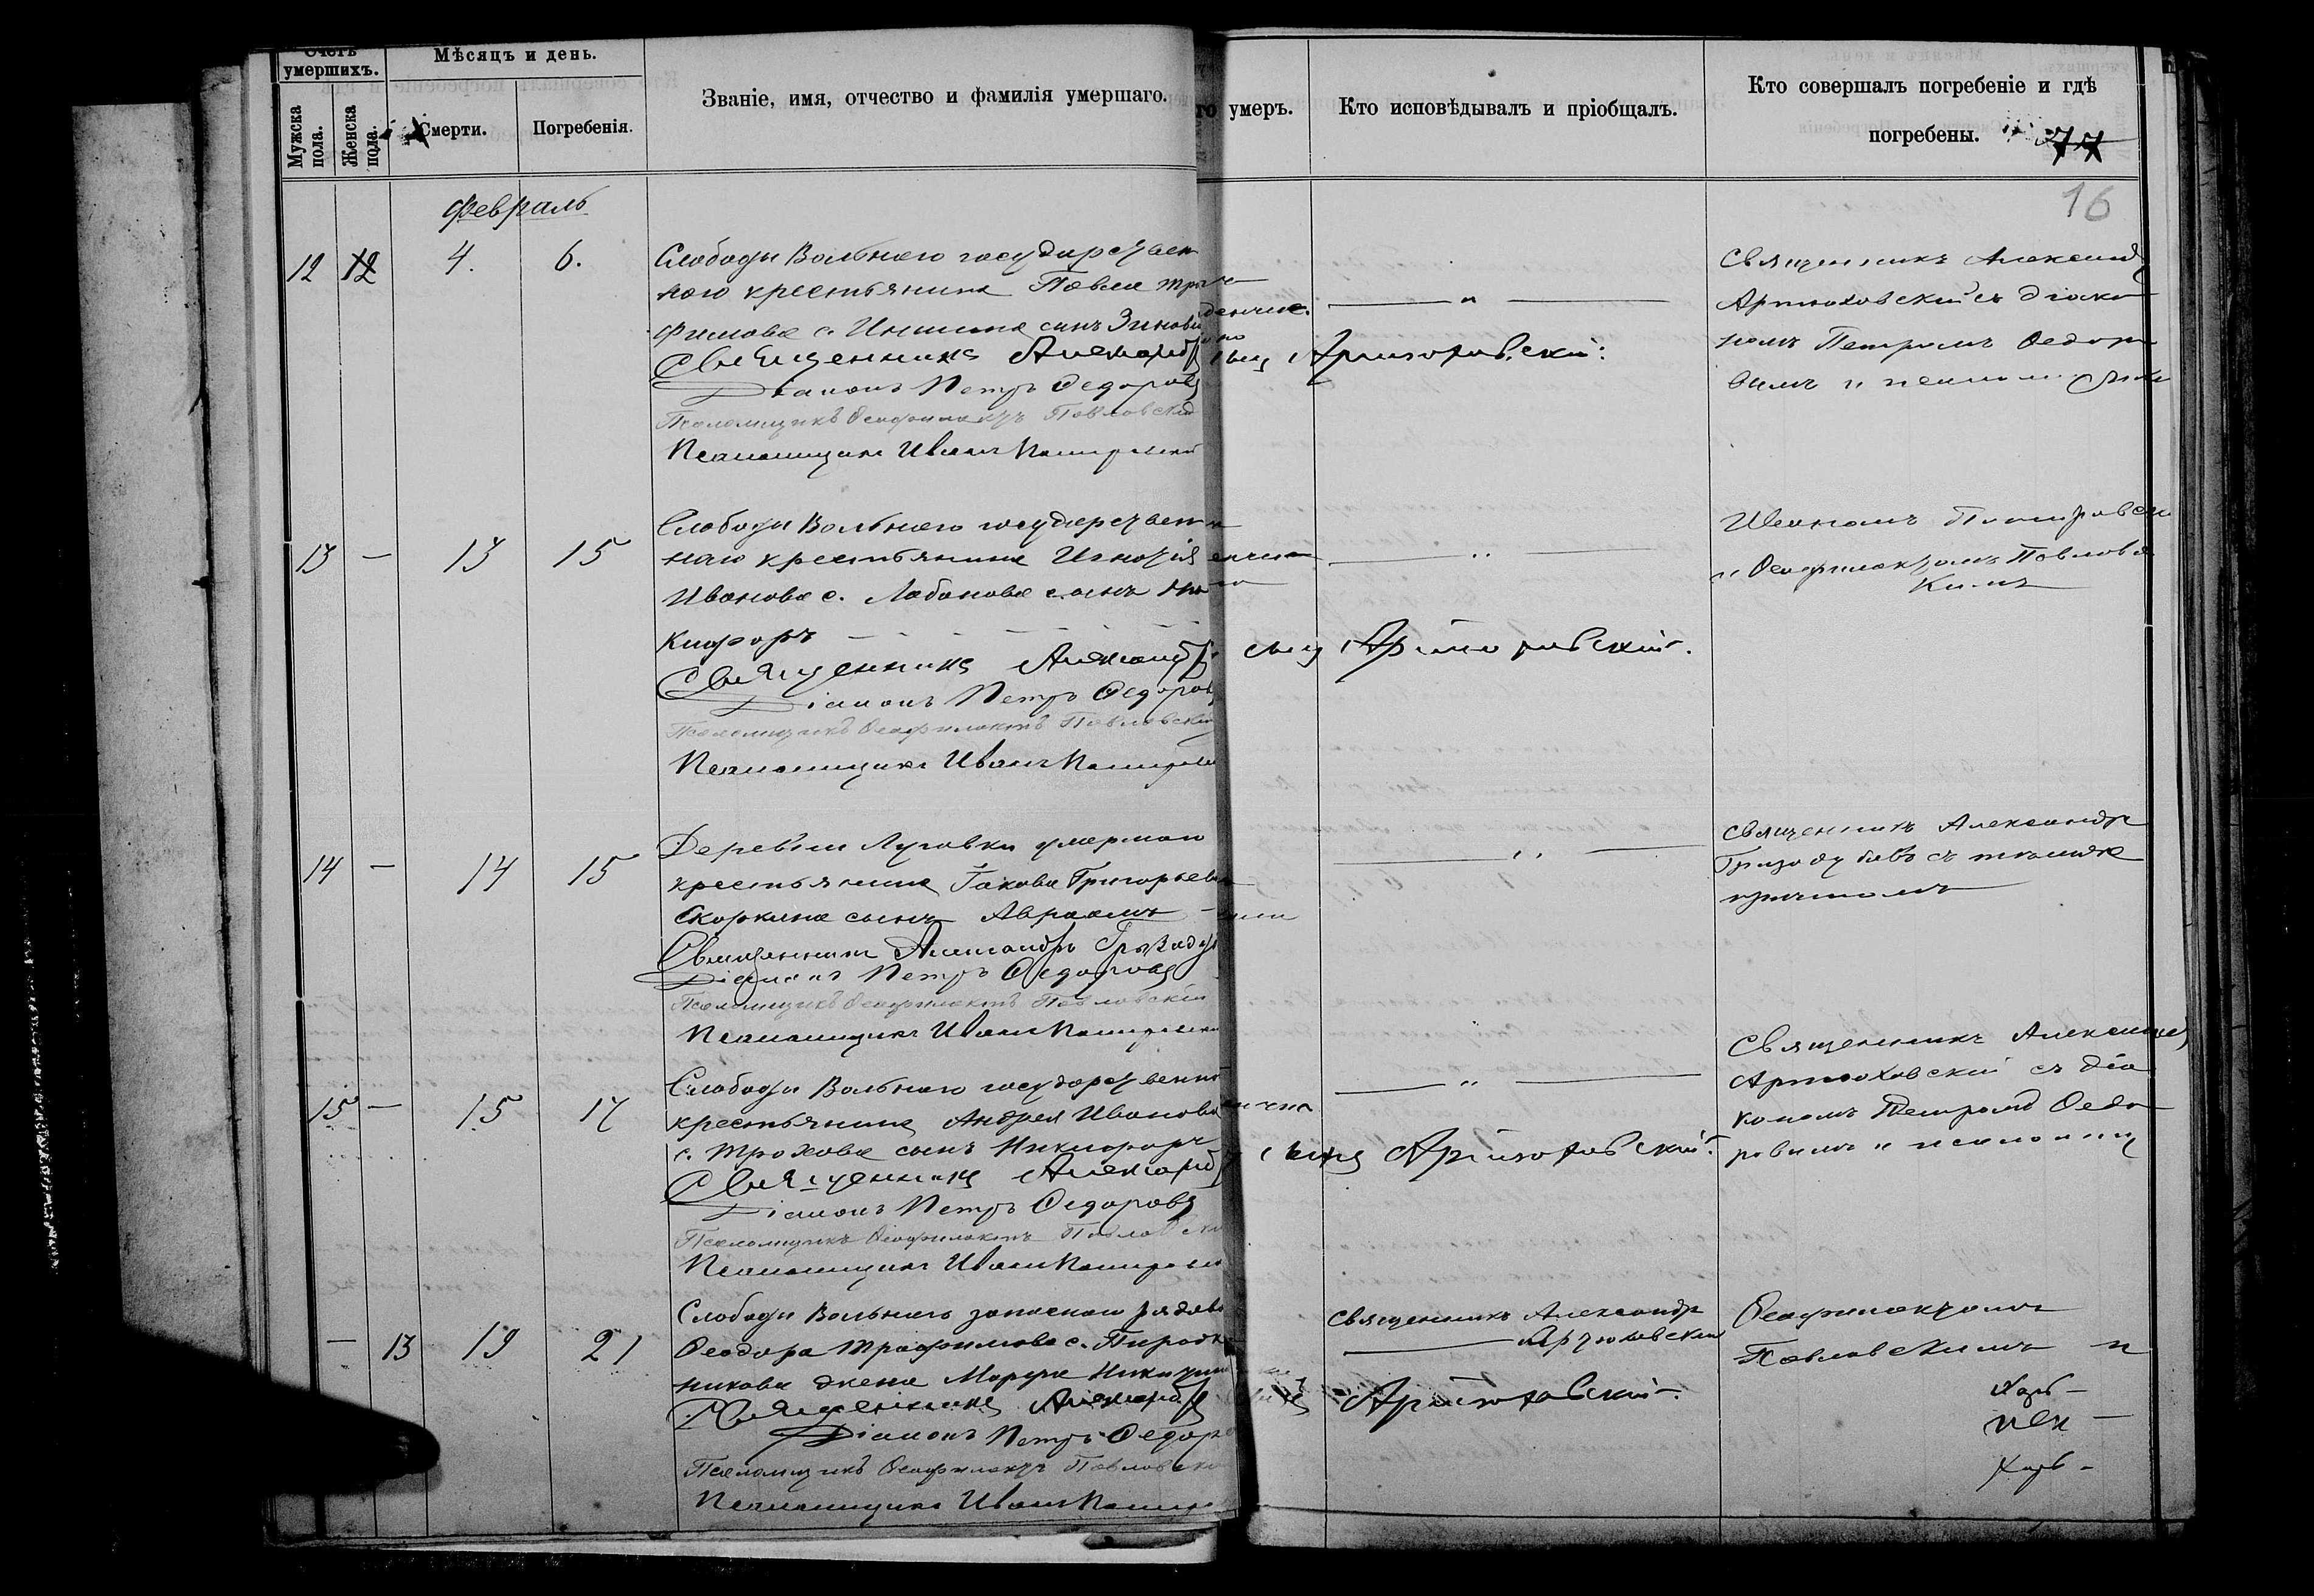 Счетъ умершихъ.
Мужска пола.
Женска пола.
Мѣсяцъ и день.
Смерти.
Погребенія.
Званіе, имя, отчество и фамилія умершаго.
го умеръ.
Кто исповѣдывалъ и пріобщалъ.
Кто совершалъ погребеніе и гдѣ
погребены.
77
16
Февраль
12 12 4. 6.
Слободы Вольнаго государствен
наго крестьянина Павла Тро
фимова с. Иншина сынъ Зиновій
Священникъ Александръ Артюховскій.
Діаконъ Петръ Ѳедоровъ
Псаломщикъ Ѳеофилактъ Павловскій
Псаломщикъ Иванъ
Священникъ Александръ
Артюховскій съ діако
номъ Петромъ Ѳедоро
вымъ и
13 — 13 15
Слободы Вольнаго государствен
наго крестьянина Игнатія
Иванова с. Лобанова сынъ Ни
кифоръ
Священникъ Александръ Артюховскій.
Діаконъ Петръ Ѳедоровъ
Псаломщикъ Ѳеофилактъ Павловскій
Псаломщикъ Иванъ
Иваномъ
и Ѳеофилактомъ Павловс
кимъ
14 — 14 15
Деревни Луговки умершаго
крестьянина Іакова Григорьева
Скоркина сынъ Авраамъ
Священникъ Александръ
Діаконъ Петръ Ѳедоровъ
Псаломщикъ Ѳеофилактъ Павловскій
Псаломщикъ Иванъ
Священникъ Александръ
съ
причтомъ
15 — 15 17
Слободы Вольнаго государственнаго
крестьянина Андрея Иванова
с. Трохова сынъ Никифоръ
Священникъ Александръ Артюховскій.
Діаконъ Петръ Ѳедоровъ
Псаломщикъ Ѳеофилактъ Павловскій
Псаломщикъ Иванъ
Священникъ Александръ
Артюховскій съ діа
кономъ Петромъ Ѳедо
ровымъ и псаломщ
— 13 19 21
Слободы Вольнаго запаснаго рядова
Ѳеодора Трофимова с.
никова жена Марѳа
Священникъ Александръ Артюховскій.
Діаконъ Петръ Ѳедоро
Псаломщикъ Ѳеофилактъ Павловскі
Псаломщикъ Иванъ
Священникъ Александръ
Артюховскій
Ѳеофилактомъ
Павловскимъ и